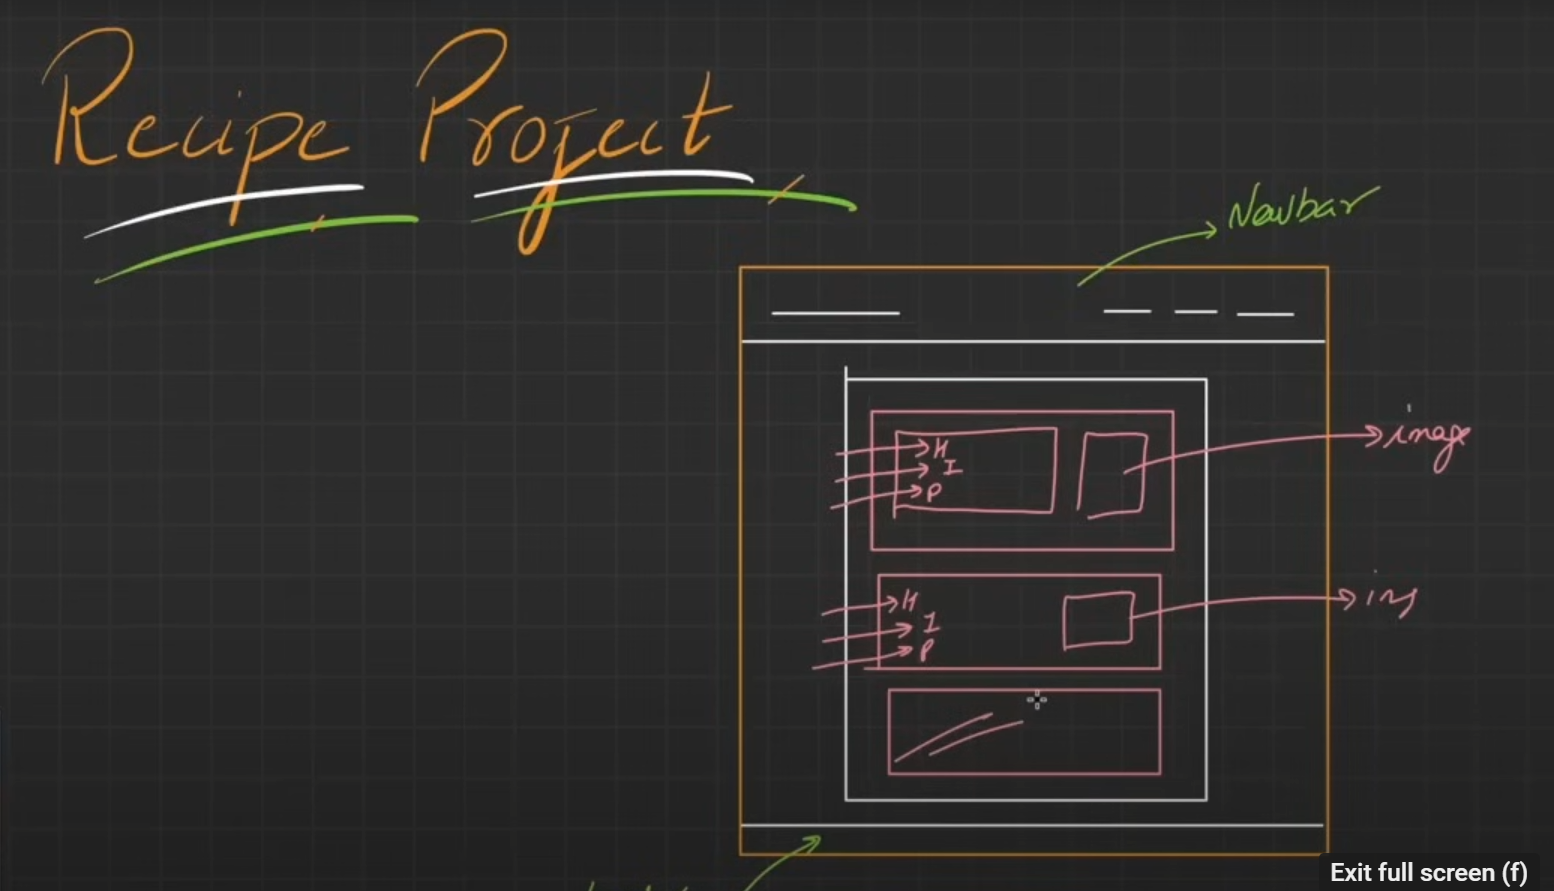 Recipe Project
Navbar
H
I
P
image
H
I
P
img
Exit full screen (f)